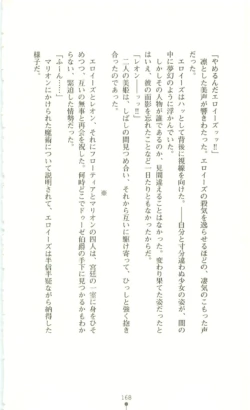 「やめるんだエロイーズッ!!」
凛とした美声が響きわたった。エロイーズの殺気を逸らせるほどの、凄気のこもった声
だった。
エロイーズはハッとして背後に視線を向けた。――自分と寸分違わぬ少女の姿が、闇の
中に夢幻のように浮かんでいた。
しかしその人物が誰であるのか、見間違えることはなかった。変わり果てた姿だったと
はいえ、彼の面影を忘れたことなど一日たりともなかったからだ。
「レオン――ッッ!!」
二人の美姫は、しばしの間見つめ合い、それから互いに駆け寄って、ひっしと強く抱き
合ったのであった。
※
エロイーズとレオン、それにフローティアとマリオンの四人は、宮廷の一室に身をひそ
めつつ、互いの無事と再会を祝した。何時どこでドゥーゼ伯爵の手下に見つかるかもわか
らない、緊迫した情勢だった。
「ふーん……」
マリオンにかけられた魔術について説明されて、エロイーズは半信半疑ながら納得した
様子だ。
168